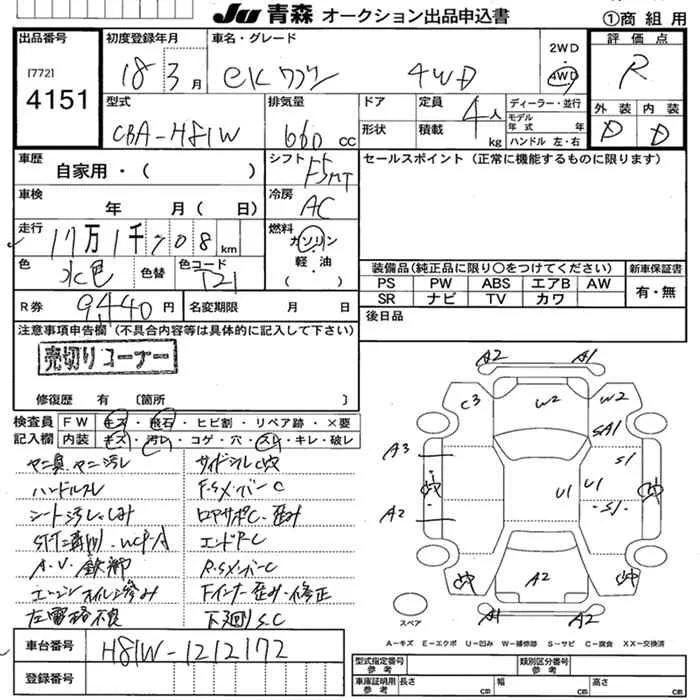 JU 青森 オークション出品申込書
①商 組 用
出品番号
[772]
4151
初度登録年月
18 3 月
車名・グレード
eKワゴン 4WD
2WD
4WD
評 価 点
R
外 装 内 装
D D
型式
CBA-H81W
排気量
660 cc
ドア
形状
定員 4人
積載 kg
ディーラー・並行
モデル
年 式 年
ハンドル 左・右
車歴
自家用・( )
シフト
F5MT
セールスポイント (正常に機能するものに限ります)
車検
年 月( 日)
冷房
AC
走行
17万1千708 km
燃料
ガソリン
軽・油
( )
色
水色
色替
色コード
121
装備品(純正品に限り○をつけてください)
新車保証書
PS PW ABS エアB AW
SR ナビ TV カワ
有・無
R券
9440 円
名変期限 月 日
後日品
注意事項申告欄 (不具合内容等は具体的に記入して下さい)
売切りコーナー
修復歴 有 〔箇所 〕
検査員
記入欄
FW キズ・飛石・ヒビ割・リペア跡・×要
内装 キズ・汚レ・コゲ・穴・スレ・キレ・破レ
ヤニ臭、ヤニ汚レ
ハンドルスレ
シート汚レ、シミ
A.V.欠品
エンジンオイル滲み
左電格不良
サイドシル凹
F.SX.バーC
ロアサポC・歪み
エンドP.C
R.SX.バーC
Fインナー歪み・修正
下廻りS.C
A2 A1
C3 W2 W2
SA1
A3 S1
凹 U1 U1 凹
A2 S1
凹 A2 凹
A1 A2
スペア
A-キズ E-エクボ U-凹み W-補修跡 S-サビ C-腐食 XX-交換済
車台番号
H81W-1212172
登録番号
型式指定番号
参考
類別区分番号
参考
車庫証明用
参考
長さ cm 幅 cm 高さ cm